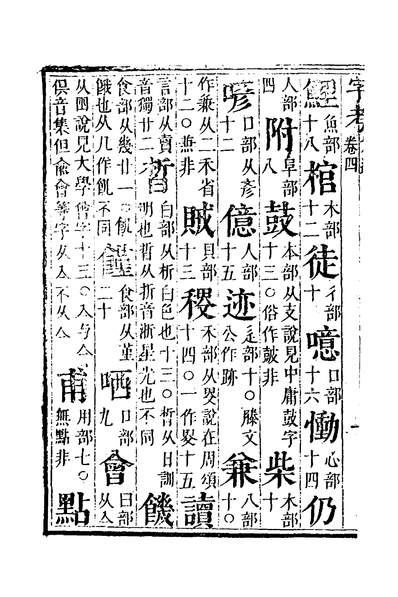 字考 卷四
魚部十八棺木部十二徒彳部十噫口部十六慟心部十四仍
人部四附阜部八鼓本部从支說見中庸鼓字十三○俗作皷非柴木部十
喭口部从彥十二億人部十五迹辵部十○滕文公作跡兼八部十○
作兼从二禾省十二○𠔥非賊貝部十三稷禾部从畟說在周頌十四○一作畟十五讀
言部从𧶠音獨廿二晳白部从析白色也十三○晢从日訓明也晢从折音浙星光也不同饑
食部从幾廿一○飢餓也从几作飢不同饉食部从堇二十哂口部九會曰部从亼
从四說見大學會字十三○入与亼俱音集但僉會等字从亼不从人甫用部七○無點非點